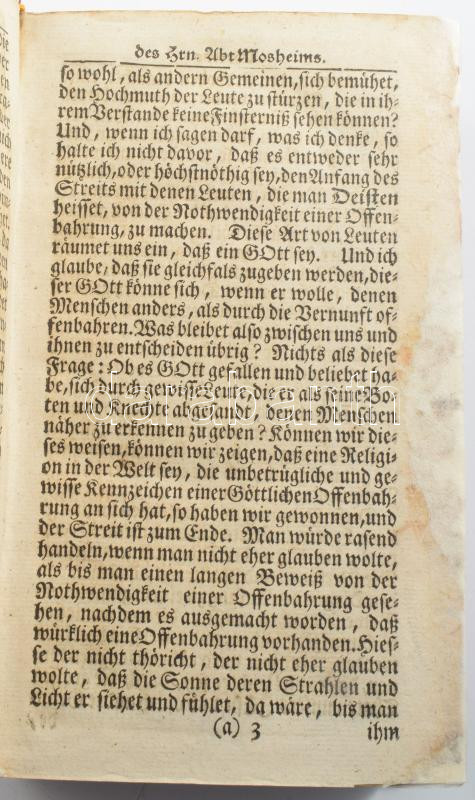 des Hrn. Abt Mosheims.
so wohl, als andern Gemeinen, sich bemühet,
den Hochmuth der Leute zu stürzen, die in ih-
rem Verstande keine Finsterniß sehen können?
Und, wenn ich sagen darf, was ich denke, so
halte ich nicht davor, daß es entweder sehr
nützlich, oder höchstnöthig sey, den Anfang des
Streits mit denen Leuten, die man Deisten
heisset, von der Nothwendigkeit einer Offen-
bahrung, zu machen. Diese Art von Leuten
räumet uns ein, daß ein GOtt sey. Und ich
glaube, daß sie gleichfals zugeben werden, die-
ser GOtt könne sich, wenn er wolle, denen
Menschen anders, als durch die Vernunft of-
fenbahren. Was bleibet also zwischen uns und
ihnen zu entscheiden übrig? Nichts als diese
Frage: Ob es GOtt gefallen und beliebet ha-
be, sich durch gewisse Leute, die er als seine Bo-
ten und Knechte abgesandt, denen Menschen
näher zu erkennen zu geben? Können wir die-
ses weisen, können wir zeigen, daß eine Religi-
on in der Welt sey, die unbetrügliche und ge-
wisse Kennzeichen einer Göttlichen Offenbah-
rung an sich hat, so haben wir gewonnen, und
der Streit ist zum Ende. Man würde rasend
handeln, wenn man nicht eher glauben wolte,
als bis man einen langen Beweiß von der
Nothwendigkeit einer Offenbahrung gese-
hen, nachdem es ausgemacht worden, daß
würklich eine Offenbahrung vorhanden. Hies-
se der nicht thöricht, der nicht eher glauben
wolte, daß die Sonne deren Strahlen und
Licht er siehet und fühlet, da wäre, bis man
(a) 3 ihm